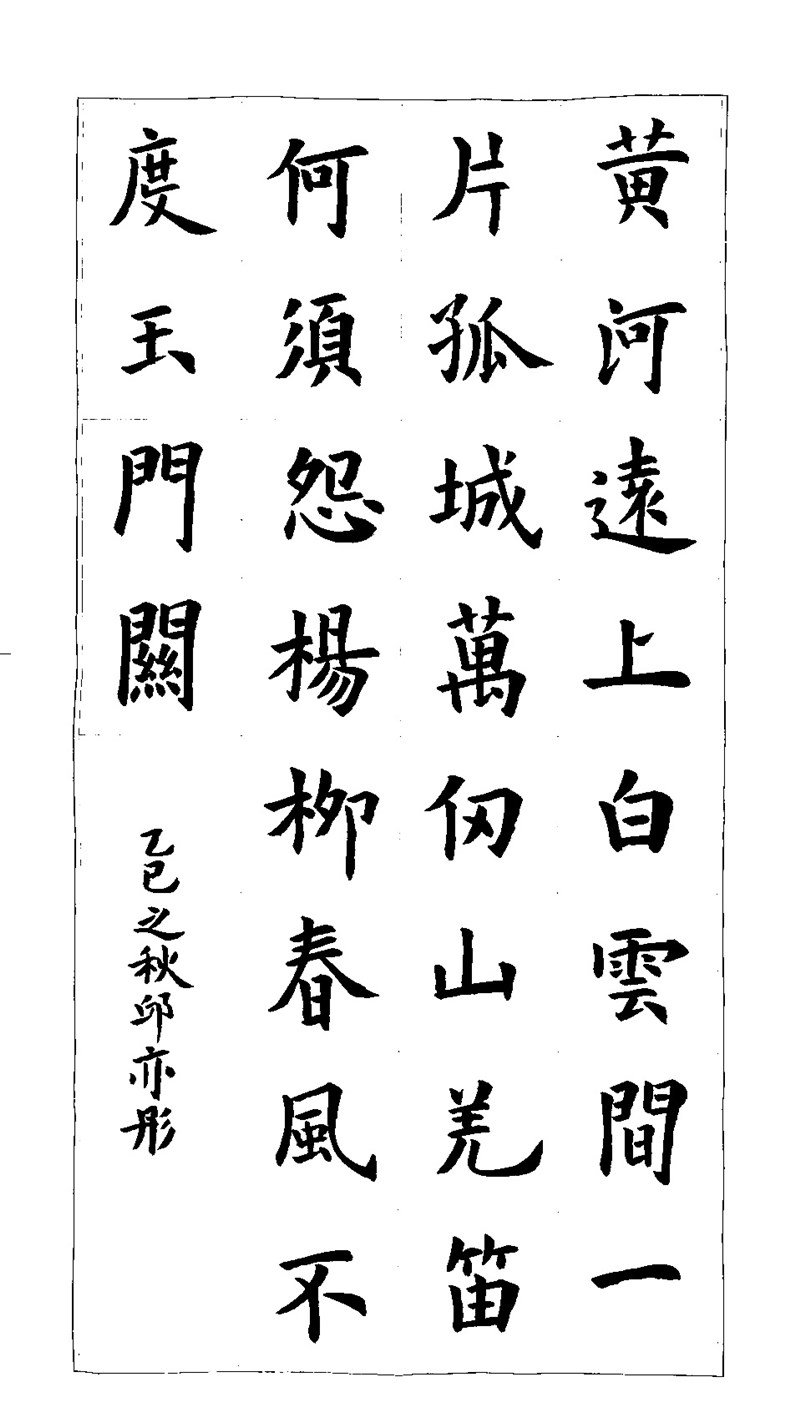 黄河遠上白雲間一
片孤城萬仞山羌笛
何須怨楊柳春風不
度玉門關
乙巳之秋邱亦彤